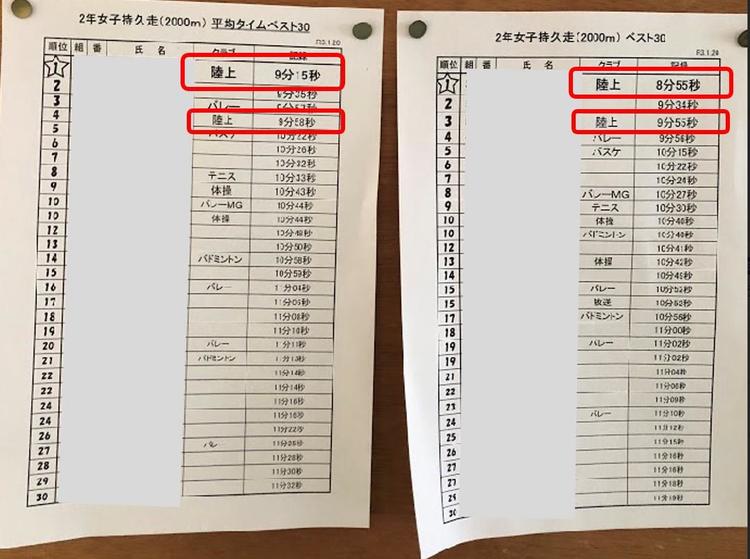 2年女子持久走(2000m) 平均タイムベスト30
R3.1.20
順位 組 番 氏 名 クラブ 記録
1 陸上 9分15秒
2 9分35秒
3 バレー
4 陸上 9分58秒
5 バスケ 10分22秒
6 10分26秒
7 10分32秒
8 テニス 10分33秒
9 体操 10分43秒
10 バレーMG 10分44秒
10 体操 10分44秒
12 10分48秒
13 10分50秒
14 バドミントン 10分58秒
15 10分59秒
16 バレー 11分04秒
17 11分06秒
18 11分08秒
19 11分10秒
20 バレー 11分11秒
21 バドミントン 11分13秒
22 11分14秒
22 11分14秒
24 11分16秒
24 11分16秒
26 11分22秒
27 バレー 11分26秒
28 11分28秒
29 11分30秒
30 11分32秒
2年女子持久走(2000m) ベスト30
R3.1.20
順位 組 番 氏 名 クラブ 記録
1 陸上 8分55秒
2 9分34秒
3 陸上 9分55秒
4 バレー 9分56秒
5 バスケ 10分15秒
6 10分22秒
7 10分24秒
8 バレーMG 10分27秒
9 テニス 10分30秒
10 体操 10分40秒
10 バドミントン 10分40秒
12 10分41秒
13 体操 10分42秒
14 10分46秒
15 バレー 10分52秒
15 放送 10分52秒
17 バドミントン 10分56秒
18 11分00秒
19 バレー 11分02秒
19 11分02秒
21 11分04秒
22 11分06秒
23 11分09秒
23 バレー 11分10秒
24 11分12秒
25 11分15秒
26 11分16秒
27 11分16秒
27 11分18秒
29 11分19秒
30